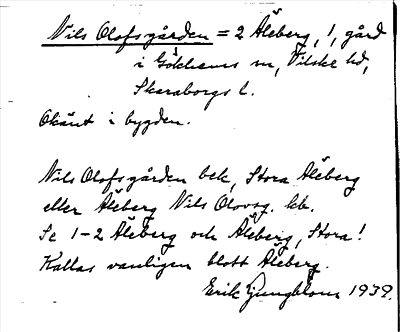 Nils Olofsgården = 2 Åleberg, 1, gård
i Gökhems sn, Vilske hd,
Skaraborgs l.
Okänt i bygden.
Nils Olofsgården bek, Stora Åleberg
eller Åleberg Nils Olovsg. kb.
Se 1-2 Åleberg och Åleberg, Stora!
Kallas vanligen blott Åleberg.
Erik Ljungblom 1939.